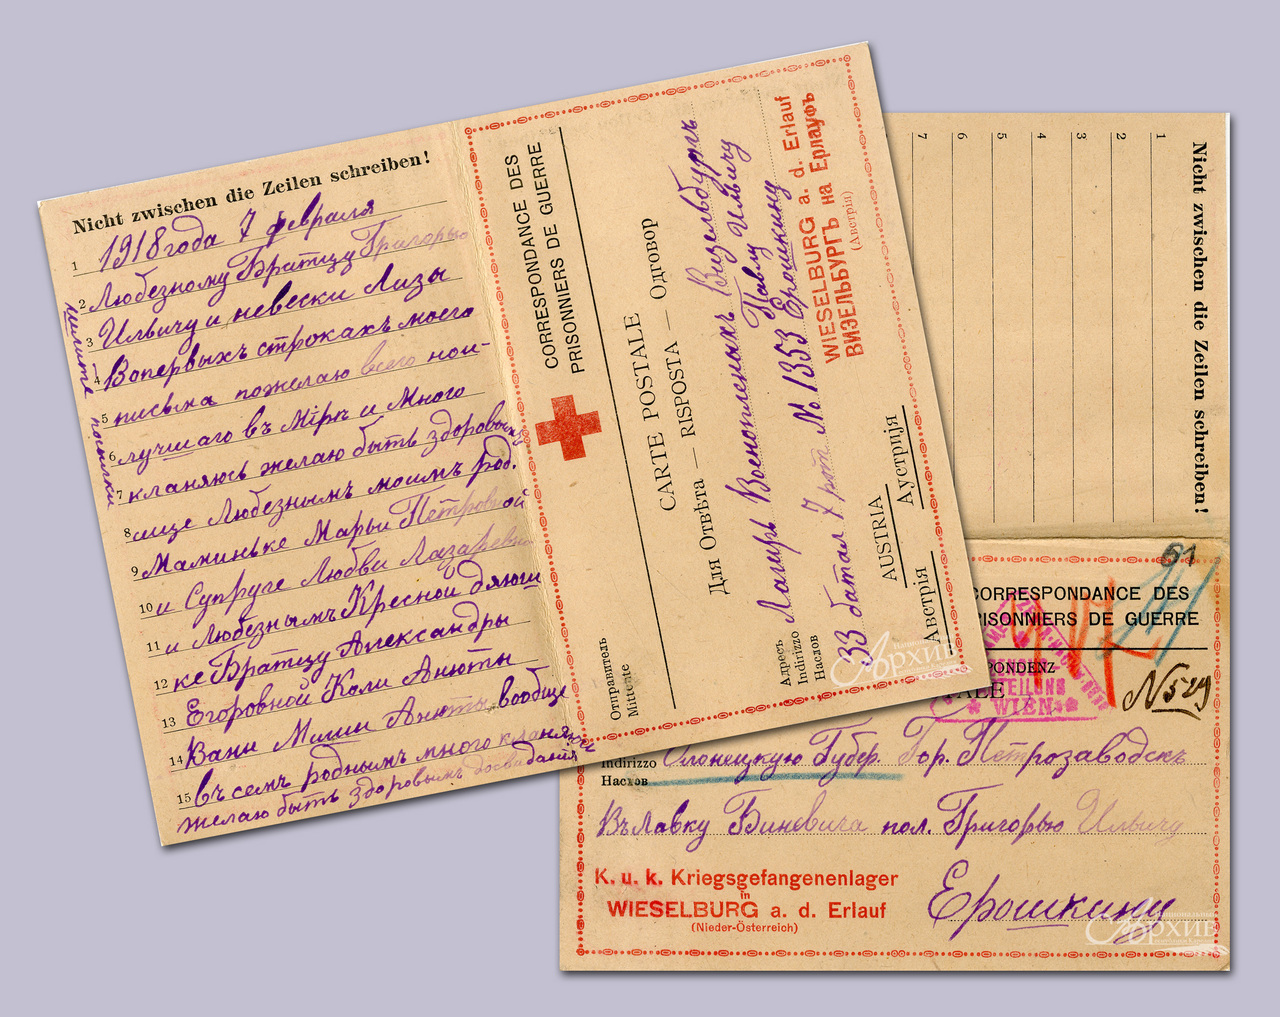 Nicht zwischen die Zeilen schreiben!
1 1918 года 7 февраля
2 Любезному Братцу Григорью
3 Ильичу и невески Лизы
4 Вопервыхъ строкахъ моего
5 письма пожелаю всего нои-
6 лучшаго въ Мірѣ и Много
7 кланяюсь желаю быть здоровыми
8 ище Любезнымъ моимъ род.
9 Маминьке Марьи Петровной
10 и Супруге Любви Лазаревны
11 и Любезнымъ Кресной дяюши
12 ке Братцу Александры
13 Егоровной Коли Анюты
14 Вани Миши Анюты вообще
15 въсемъ роднымъ много кланяюсь
желаю быть здоровымъ досвидания
пишите посылки
CORRESPONDANCE DES
PRISONNIERS DE GUERRE
CARTE POSTALE
Для Отвѣта — RISPOSTA — Одговор
Отправитель
Mittente
Адресъ
Indirizzo
Наслов
Лагирь Военопленыхъ Визельбургъ
Павлу Ильичу
33 батал 7 рот № 1353 Ерошкину
WIESELBURG a. d. Erlauf
ВИЗЕЛЬБУРГЪ на Ерлауфъ
(Австрія)
AUSTRIA
Австрія Аустриjя
Архив
Nicht zwischen die Zeilen schreiben!
1
2
3
4
5
6
7
61
CORRESPONDANCE DES
PRISONNIERS DE GUERRE
WIEN
N529
Indirizzo
Наслов
Олонецкую Губер. Гор. Петрозаводскъ
Въ Лавку Биневича пол. Григорью Ильичу
Ерошкину
K. u. k. Kriegsgefangenenlager
in
WIESELBURG a. d. Erlauf
(Nieder-Österreich)
Архив